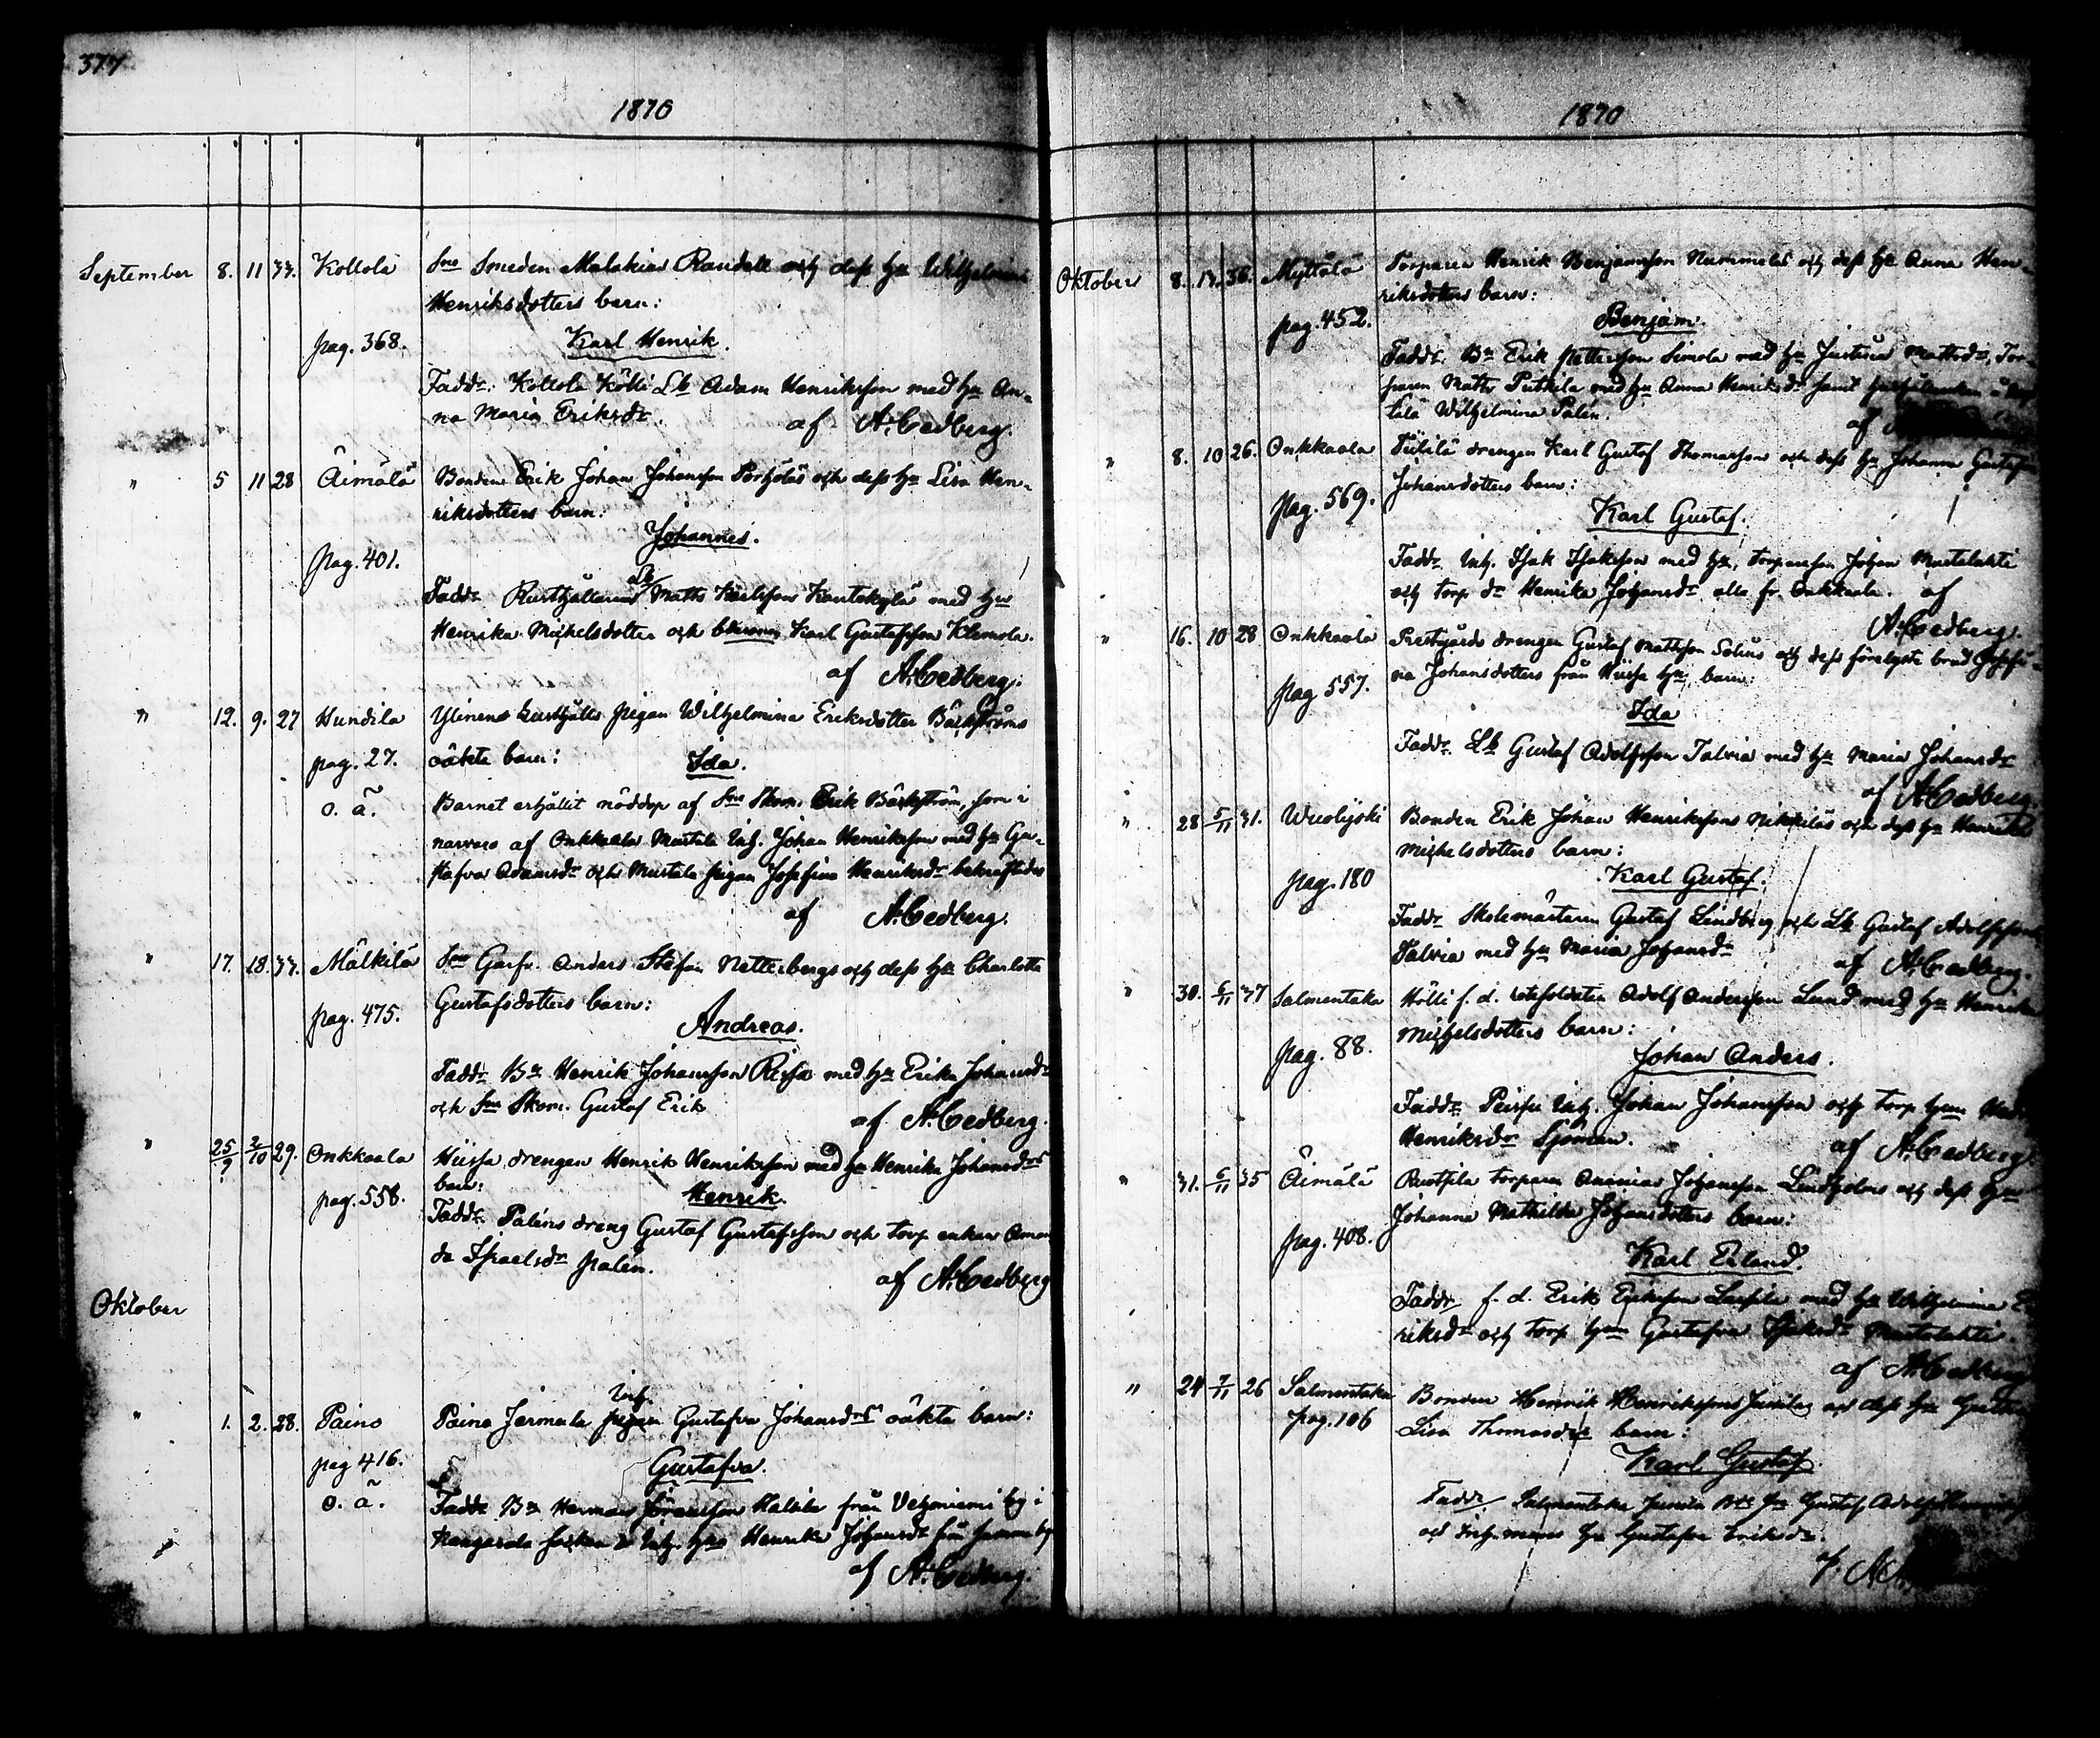 377
1870
September 8. 11 33. Kollola Sme Smeden Malakias Randell och dess hu Wilhelmina
Henriksdotters barn:
pag. 368. Karl Henrik.
Faddr. Kollola Kölli Lb Adam Henriksson med hu An-
na Maria Eriksdr.
af A. Cedberg.
" 5 11 28 Äimälä Bonden Erik Johan Johansson Porholas och dess hu Lisa Hen-
riksdotters barn:
Johannes.
pag. 401.
Faddr Rusthållaren Matts Karlsson Kantokylä med hu
Henrika Michelsdotter och Karl Gustafsson Klemola.
af A. Cedberg.
" 12. 9. 27 Hundila Ylinens Rusthålls pigan Wilhelmina Eriksdotter Bäckströms
pag. 27. oäkta barn: Ida.
o. ä. Barnet erhållit nöddop af Sme Skom. Erik Bäckström, som i
narvaro af Onkkaala Martila Inh. Johan Henriksson med hu Gu-
stafva Adamsdr och Murtala pigan Josefina Henriksdr bekräftades
af A. Cedberg.
" 17. 18. 33. Mälkilä Sme Garfv. Anders Stefan Netterbergs och dess hu Charlotta
Gustafsdotters barn:
pag. 475. Andreas.
Faddr Bn Henrik Johansson Rissa med hu Erika Johansdr
och Sme Skom. Gustaf Erik
af A. Cedberg.
" 25/9 2/10 29. Onkkaala Hüssa drengen Henrik Henriksson med hu Henrika Johansdrs
barn:
pag. 558. Henrik.
Faddr. Palins dreng Gustaf Gustafsson och torp enkan Aman
da Israelsdr palin.
af A. Cedberg
Oktober
Inh.
" 1. 2. 28. Paino Paino Jarmala pigan Gustafva Johansdrs oäkta barn:
pag 416. Gustafva.
o. ä. Faddr Bn Herman Halila från Vehoniemi by i
Kangasala socken Inh. hu Henrika Johansdr från samma by
af A. Cedberg.
1870
Oktober 8. 36. Myttälä Torparen Henrik Benjaminsson Nummelas och dess hu Anna Hen-
riksdotters barn:
pag. 452. Benjam.
Faddr. Bn Erik Pettersson Simola med hu Justina Mattsdr, Tor-
paren Matts med hu Anna Henriksdr samt
Wilhelmina Palin.
af
" 8. 10 26. Onkkaala drengen Karl Gustaf Thomasson och dess hu Johanna Gustafva
Johansdotters barn:
pag. 569. Karl Gustaf.
Faddr Inh. Isak Isaksson med hu, torpareson Johan Mustalahti
och torp. dr Henrika Johansdr alla fr. Onkkaala. af
A. Cedberg.
" 16. 10 28 Onkkaala Prestgårds drengen Gustaf Mattsson Solins och dess förelofvade brud Josefi-
na Johansdotters från Hüssa hu, barn:
pag 557. Ida
Faddr Lb Gustaf Adolfsson Talvia med hu Maria Johansdr
af A. Cedberg.
" 28 5/11 31. Wuolijoki Bonden Erik Johan Henrikssons Nikkiläs och dess hu Henrikas
Michelsdotters barn:
pag. 180 Karl Gustaf.
Faddr Skolemästaren Gustaf Lindberg och Lb Gustaf Adolfsson
Talvia med hu Maria Johansdr
af A. Cedberg.
" 30. 6/11 37 Salmentaka Hölli f. d. rotesoldaten Adolf Andersson Lund med hu Henrika
Michelsdotters barn:
pag. 88. Johan Anders.
Faddr. Inh. Johan Johansson och torp hu
Henriksdr Sjöman.
af A. Cedberg.
" 31. 6/11 35 Äimälä torparen Ananias Johansson Lindholms och dess hu
Johanna Mathilda Johansdotters barn:
pag. 408.
Karl Erland.
Faddr f. d. Erik Eriksson Laipila med hu Wilhelmina E-
riksdr och torp hu Gustafva Isaksdr Mustalahti.
af A. Cedberg
" 24 7/11 26 Salmentaka Bonden Henrik Henrikssons Junila och dess hu
pag. 106 Lisa Thomasdrs barn:
Karl Gustaf.
Faddr Salmentaka Junila Gustaf Adolf
och hu Gustafva Eriksdr.
af. A.